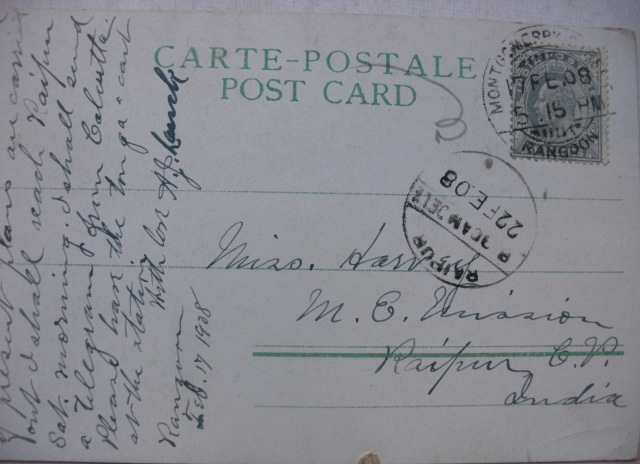 CARTE-POSTALE
POST CARD
If present plans are carried
out I shall reach Raipur
Sat. morning. I shall send
a telegram from Calcutta.
Please have the tonga & cart
at the station
With love
Rangoon
Feb. 17 1908
MONTGOMERY
FE.08
15
RANGOON
RAIPUR
22FE.08
Miss. Harvey
M. E. Mission
Raipur C.P.
India